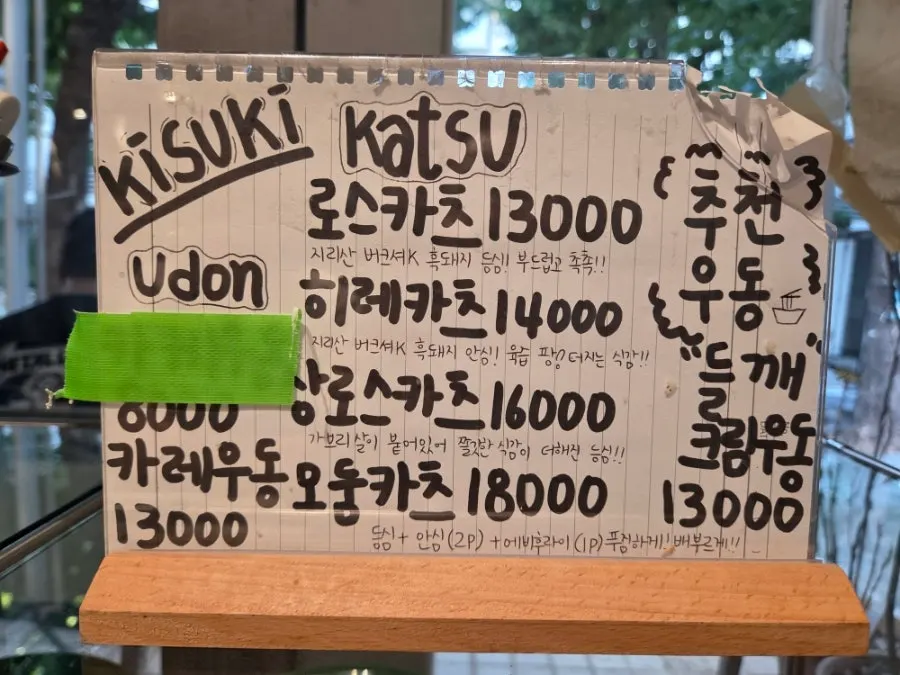 KISUKI
Katsu
로스카츠 13000
지리산 버크셔K 흑돼지 등심! 부드럽고 촉촉!!
히레카츠 14000
지리산 버크셔K 흑돼지 안심! 육즙 팡! 터지는 식감!!
상로스카츠 16000
가브리살이 붙어있어 쫄깃한 식감이 더해진 등심!!
모둠카츠 18000
등심 + 안심(2P) + 에비후라이(1P) 푸짐하게! 배부르게!!
udon
8000
카레우동
13000
추천
우동
"들깨"
크림우동
13000